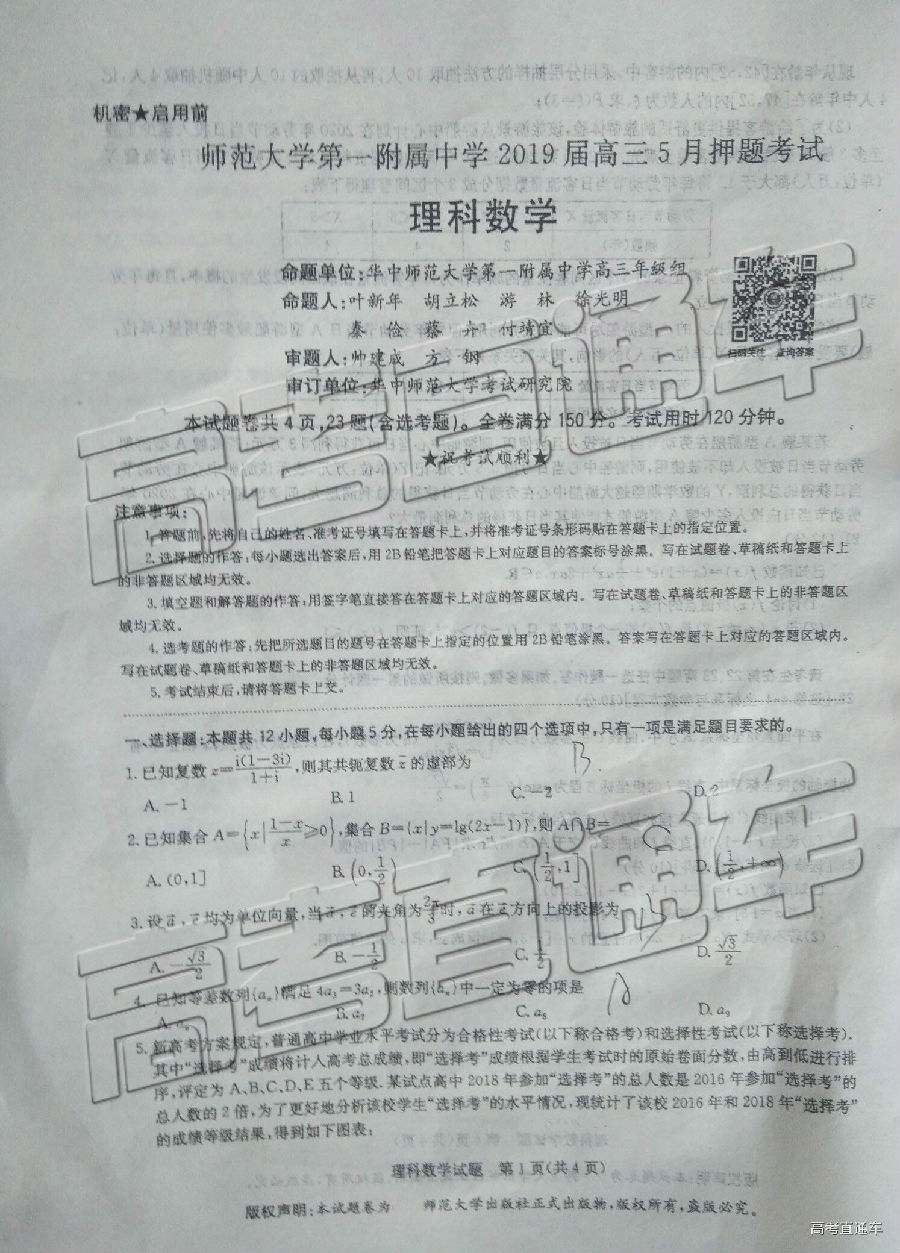 机密★启用前
师范大学第一附属中学2019届高三5月押题考试
理科数学
命题单位:华中师范大学第一附属中学高三年级组
命题人:叶新年 胡立松 游 林 徐光明
秦 俭 蔡 卉 付靖宜
审题人:帅建成 方 钢
审订单位:华中师范大学考试研究院
扫码关注 查询答案
本试题卷共4页,23题(含选考题)。全卷满分150分。考试用时120分钟。
★祝考试顺利★
注意事项:
1.答题前,先将自己的姓名、准考证号填写在答题卡上,并将准考证号条形码贴在答题卡上的指定位置。
2.选择题的作答:每小题选出答案后,用2B铅笔把答题卡上对应题目的答案标号涂黑。写在试题卷、草稿纸和答题卡上
的非答题区域均无效。
3.填空题和解答题的作答:用签字笔直接答在答题卡上对应的答题区域内。写在试题卷、草稿纸和答题卡上的非答题区
域均无效。
4.选考题的作答:先把所选题目的题号在答题卡上指定的位置用2B铅笔涂黑。答案写在答题卡上对应的答题区域内。
写在试题卷、草稿纸和答题卡上的非答题区域均无效。
5.考试结束后,请将答题卡上交。
一、选择题:本题共12小题,每小题5分,在每小题给出的四个选项中,只有一项是满足题目要求的。
1.已知复数z=i(1-3i)/1+i,则其共轭复数z̄的虚部为 B.
A.-1 B.1 C.-2 D.2
2.已知集合A={x|1-x/x≥0},集合B={x|y=lg(2x-1)},则A∩B= C
A.(0,1] B.(0,1/2) C.(1/2,1] D.(1/2,+∞)
3.设a⃗,e⃗均为单位向量,当a⃗,e⃗的夹角为2π/3时,a⃗在e⃗方向上的投影为 B
A.-√3/2 B.-1/2 C.1/2 D.√3/2
4.已知等差数列{aₙ}满足4a₃=3a₂,则数列{aₙ}中一定为零的项是 A
A.a₆ B.a₇ C.a₈ D.a₉
5.新高考方案规定,普通高中学业水平考试分为合格性考试(以下称合格考)和选择性考试(以下称选择考).
其中“选择考”成绩将计入高考总成绩,即“选择考”成绩根据学生考试时的原始卷面分数,由高到低进行排
序,评定为A、B、C、D、E五个等级.某试点高中2018年参加“选择考”的总人数是2016年参加“选择考”的
总人数的2倍,为了更好地分析该校学生“选择考”的水平情况,现统计了该校2016年和2018年“选择考”
的成绩等级结果,得到如下图表:
理科数学试题 第1页(共4页)
版权声明:本试题卷为 师范大学出版社正式出版物,版权所有,盗版必究。
高考直通车
高考直通车
高考直通车